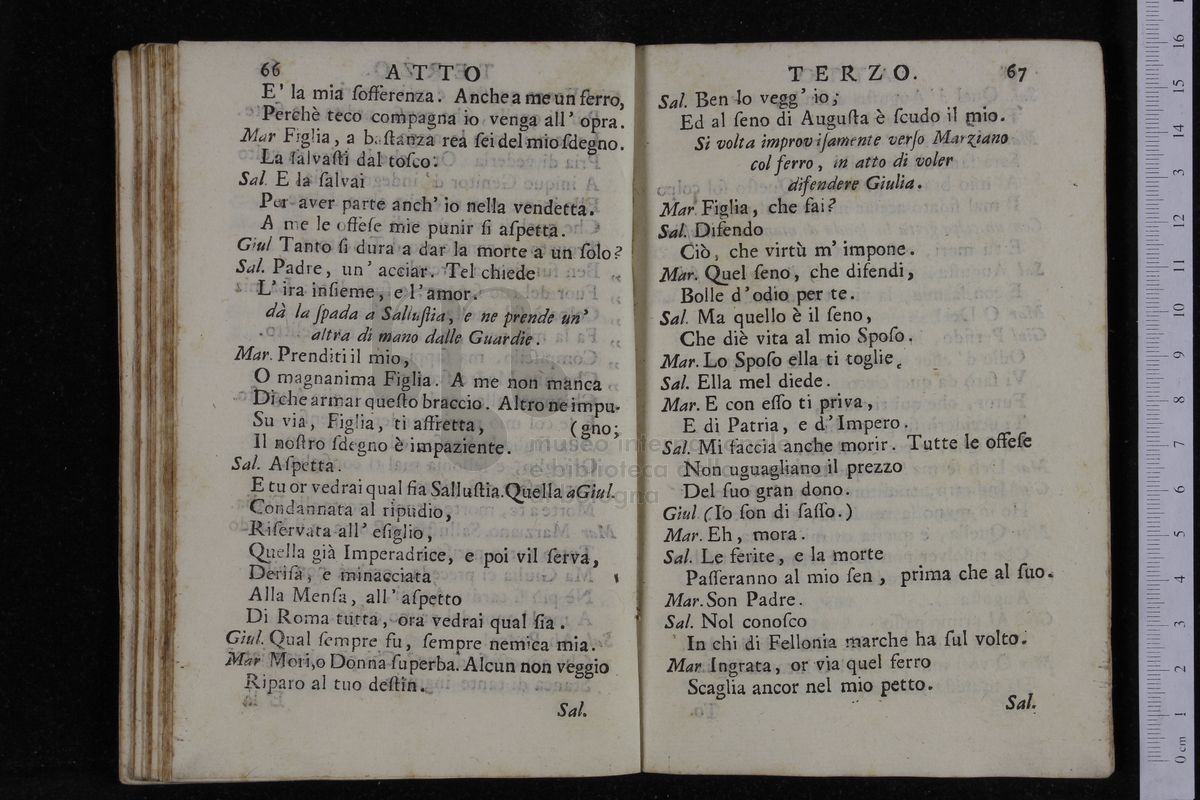 66 ATTO
E' la mia ſofferenza. Anche a me un ferro,
Perchè teco compagna io venga all' opra.
Mar Figlia, a baſtanza rea ſei del mio ſdegno.
La ſalvaſti dal toſco.
Sal. E la ſalvai
Per aver parte anch' io nella vendetta.
A me le offeſe mie punir ſi aſpetta.
Giul Tanto ſi dura a dar la morte a un ſolo?
Sal. Padre, un' acciar. Tel chiede
L' ira inſieme, e l' amor.
dà la ſpada a Salluſtia, e ne prende un'
altra di mano dalle Guardie.
Mar. Prenditi il mio,
O magnanima Figlia. A me non manca
Di che armar queſto braccio. Altro ne impu-
Su via, Figlia, ti affretta, (gno;
Il noſtro ſdegno è impaziente.
Sal. Aſpetta.
E tu or vedrai qual ſia Salluſtia. Quella a Giul.
Condannata al ripudio,
Riſervata all' eſiglio,
Quella già Imperadrice, e poi vil ſerva,
Deriſa, e minacciata
Alla Menſa, all' aſpetto
Di Roma tutta, ora vedrai qual ſia.
Giul. Qual ſempre fu, ſempre nemica mia.
Mar Mori, o Donna ſuperba. Alcun non veggio
Riparo al tuo deſtin.
Sal.
TERZO. 67
Sal. Ben lo vegg' io;
Ed al ſeno di Auguſta è ſcudo il mio.
Si volta improviſamente verſo Marziano
col ferro, in atto di voler
difendere Giulia.
Mar. Figlia, che fai?
Sal. Difendo
Ciò, che virtù m' impone.
Mar. Quel ſeno, che difendi,
Bolle d' odio per te.
Sal. Ma quello è il ſeno,
Che diè vita al mio Spoſo.
Mar. Lo Spoſo ella ti toglie.
Sal. Ella mel diede.
Mar. E con eſſo ti priva,
E di Patria, e d' Impero.
Sal. Mi faccia anche morir. Tutte le offeſe
Non uguagliano il prezzo
Del ſuo gran dono.
Giul (Io ſon di ſaſſo.)
Mar. Eh, mora.
Sal. Le ferite, e la morte
Paſſeranno al mio ſen, prima che al ſuo.
Mar. Son Padre.
Sal. Nol conoſco
In chi di Fellonia marche ha ſul volto.
Mar Ingrata, or via quel ferro
Scaglia ancor nel mio petto.
Sal.
museo internazionale
e biblioteca della
0 cm 1 2 3 4 5 6 7 8 9 10 11 12 13 14 15 16